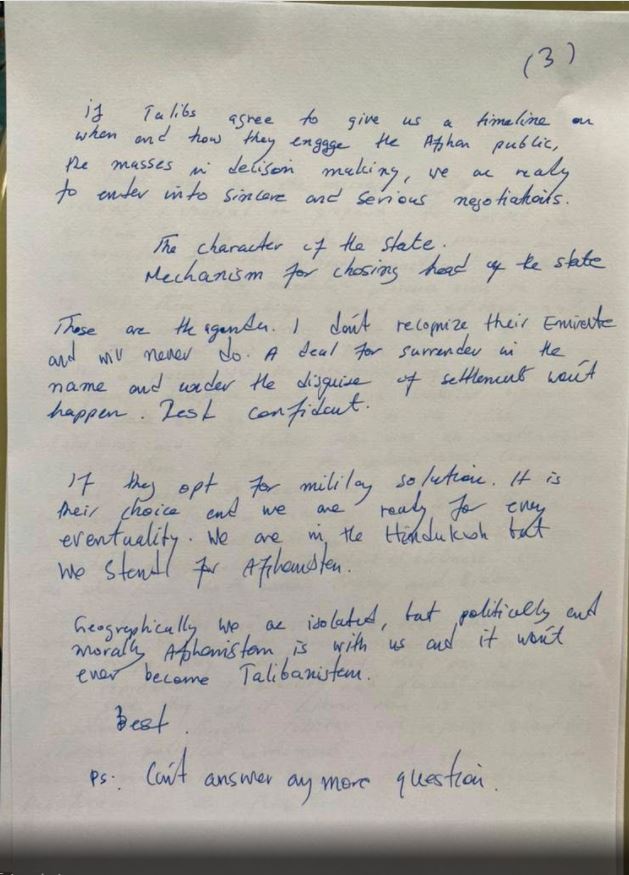 (3)
if Talibs agree to give us a timeline on
when and how they engage the Afghan public,
the masses in decison making, we are ready
to enter into sincere and serious negotiations.
The character of the state.
Mechanism for chosing head of the state
These are the agendas. I don't recognize their Emirate
and will never do. A deal for surrender in the
name and under the disguise of settlement won't
happen. Rest confident.
If they opt for military solution. It is
their choice and we are ready for every
eventuality. We are in the Hindukush but
we stand for Afghanistan.
Geographically we are isolated, but politically and
morally Afghanistan is with us and it won't
ever become Talibanistan.
Best.
Ps: Can't answer any more question.